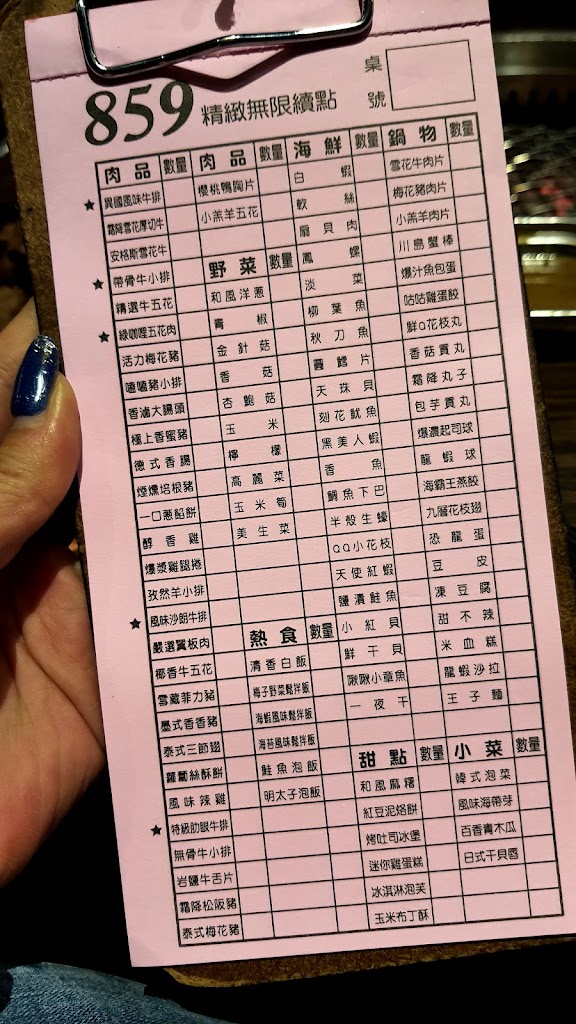 859 精緻無限續點
桌號
肉品 數量
★ 異國風味牛排
霜降雪花厚切牛
安格斯雪花牛
★ 帶骨牛小排
精選牛五花
★ 綠咖哩五花肉
活力梅花豬
嗑嗑豬小排
香滷大腸頭
極上香蜜豬
德式香腸
煙燻培根豬
一口蔥餡餅
醇香雞
爆漿雞腿捲
孜然羊小排
★ 風味沙朗牛排
嚴選翼板肉
椰香牛五花
雪藏菲力豬
墨式香香豬
泰式三節翅
蘿蔔絲酥餅
風味辣雞
★ 特級肋眼牛排
無骨牛小排
岩鹽牛舌片
霜降松阪豬
泰式梅花豬
肉品 數量
櫻桃鴨胸片
小羔羊五花
野菜 數量
和風洋蔥
青椒
金針菇
香菇
杏鮑菇
玉米
檸檬
高麗菜
玉米筍
美生菜
熱食 數量
清香白飯
梅子野菜鬆拌飯
海蝦風味鬆拌飯
海苔風味鬆拌飯
鮭魚泡飯
明太子泡飯
海鮮 數量
白蝦
軟絲
扇貝肉
鳳螺
淡菜
柳葉魚
秋刀魚
圓鱈片
天珠貝
刻花魷魚
黑美人蝦
香魚
鯛魚下巴
半殼生蠔
QQ小花枝
天使紅蝦
鹽漬鮭魚
小紅貝
鮮干貝
啾啾小章魚
一夜干
甜點 數量
和風麻糬
紅豆泥烙餅
烤吐司冰堡
迷你雞蛋糕
冰淇淋泡芙
玉米布丁酥
鍋物 數量
雪花牛肉片
梅花豬肉片
小羔羊肉片
川島蟹棒
爆汁魚包蛋
咕咕雞蛋餃
鮮Q花枝丸
香菇貢丸
霜降丸子
包芋貢丸
爆濃起司球
龍蝦球
海霸王燕餃
九層花枝翅
恐龍蛋
豆皮
凍豆腐
甜不辣
米血糕
龍蝦沙拉
王子麵
小菜 數量
韓式泡菜
風味海帶芽
百香青木瓜
日式干貝唇